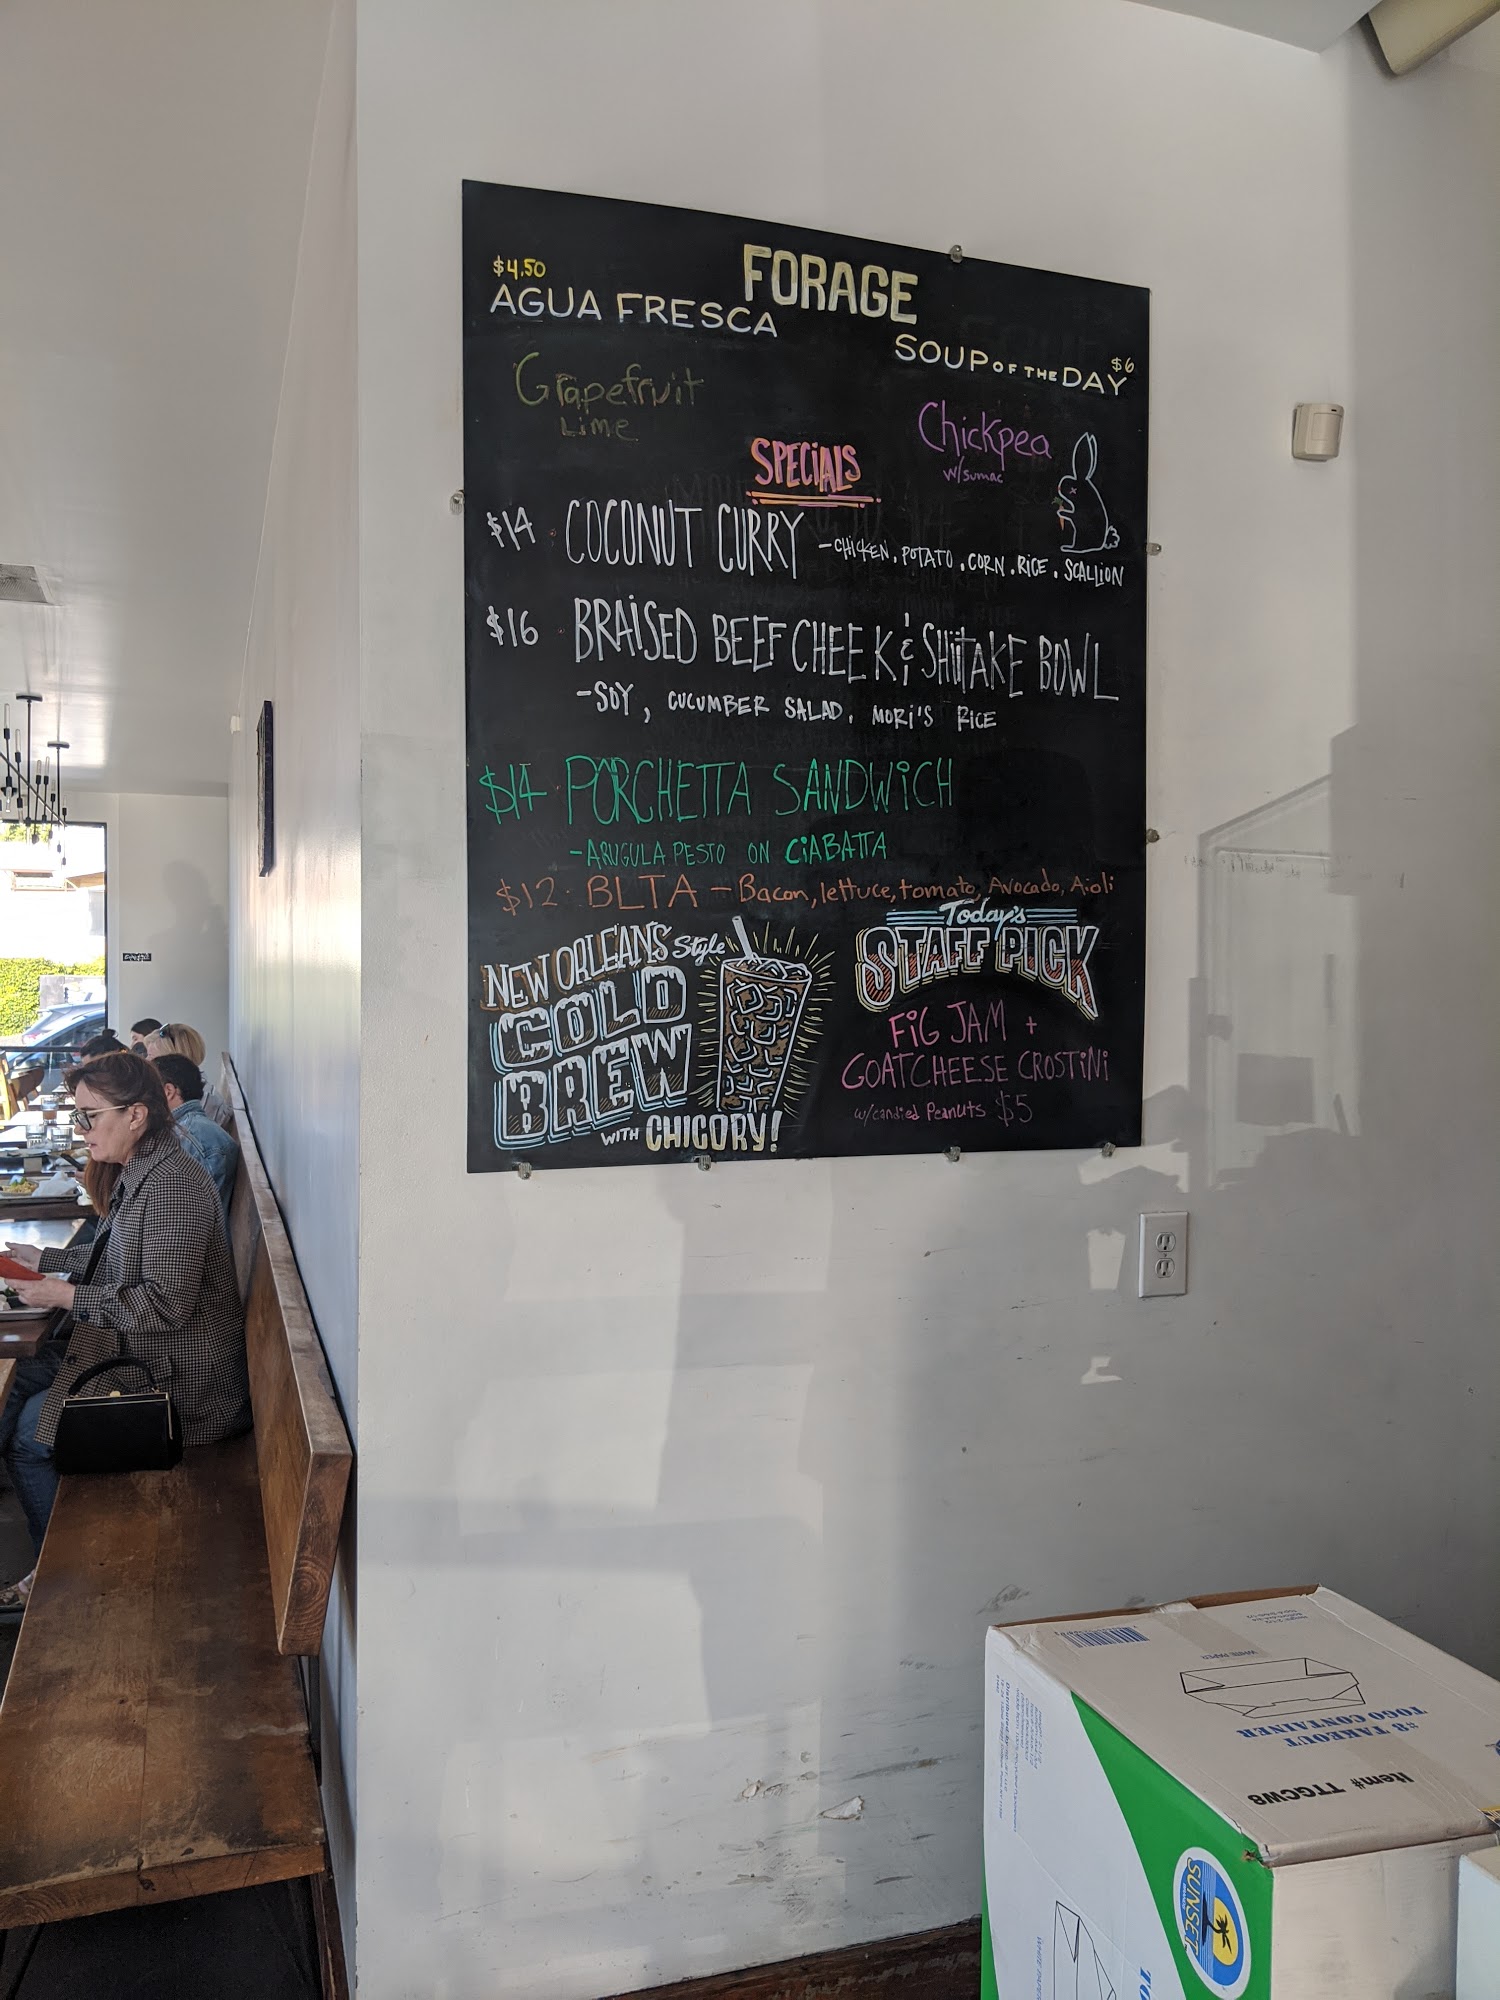 FORAGE
$4.50
AGUA FRESCA
Grapefruit
Lime
SOUP OF THE DAY $6
Chickpea
w/sumac
SPECIALS
$14 COCONUT CURRY - CHICKEN, POTATO, CORN, RICE, SCALLION
$16 BRAISED BEEF CHEEK & SHIITAKE BOWL
- SOY, CUCUMBER SALAD, MORI'S RICE
$14 PORCHETTA SANDWICH
- ARUGULA PESTO ON CIABATTA
$12 BLTA - Bacon, lettuce, tomato, Avocado, Aioli
NEW ORLEANS Style
COLD
BREW
WITH CHICORY!
Today's
STAFF PICK
FIG JAM +
GOATCHEESE CROSTINI
w/candied Peanuts $5
WHITE PAPER
#8 TAKEOUT
TOGO CONTAINER
Item# TTGCW8
SUNSET